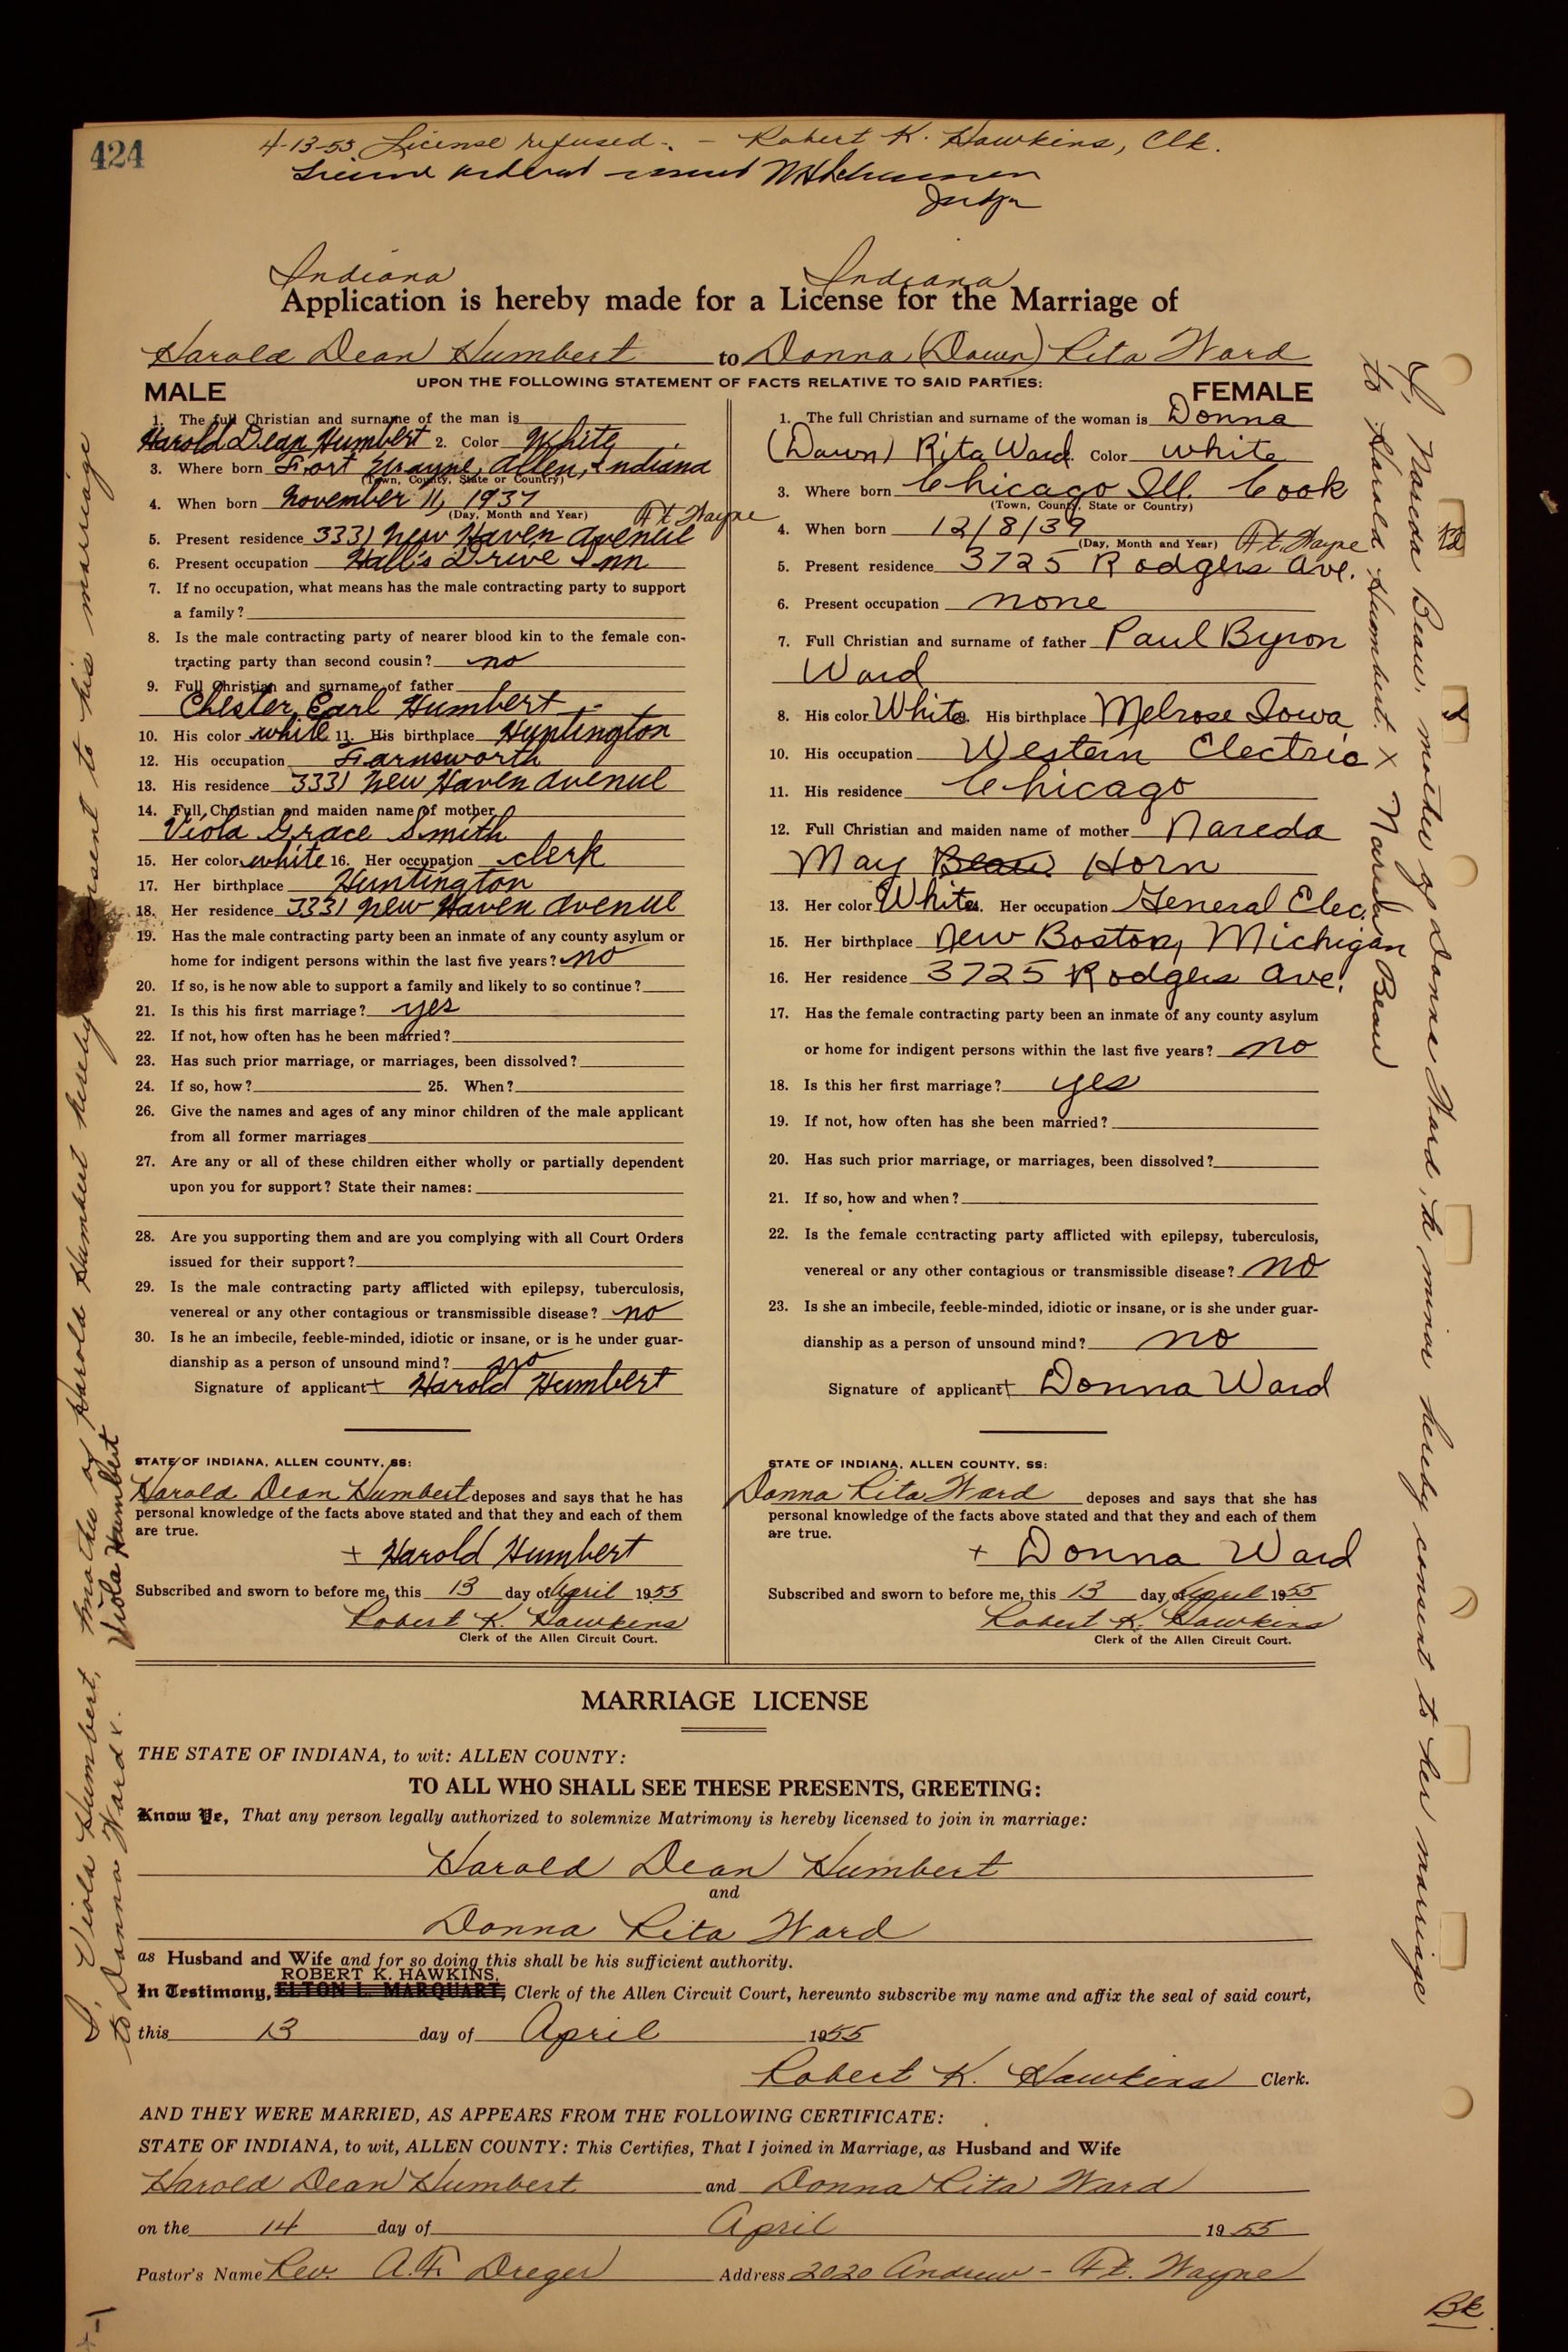 424
4-13-55 License refused. - Robert K. Hawkins, Clk.
License ordered issued
Judge
Indiana Indiana
Application is hereby made for a License for the Marriage of
Harold Dean Humbert to Donna (Dawn) Rita Ward
UPON THE FOLLOWING STATEMENT OF FACTS RELATIVE TO SAID PARTIES:
MALE
1. The full Christian and surname of the man is
Harold Dean Humbert 2. Color White
3. Where born Fort Wayne, Allen, Indiana
(Town, County, State or Country)
4. When born November 11, 1937
(Day, Month and Year) Ft Wayne
5. Present residence 3331 New Haven Avenue
6. Present occupation Hall's Drive Inn
7. If no occupation, what means has the male contracting party to support
a family?
8. Is the male contracting party of nearer blood kin to the female con-
tracting party than second cousin? no
9. Full Christian and surname of father
Chester Earl Humbert
10. His color white 11. His birthplace Huntington
12. His occupation Farnsworth
13. His residence 3331 New Haven Avenue
14. Full Christian and maiden name of mother
Viola Grace Smith
15. Her color white 16. Her occupation clerk
17. Her birthplace Huntington
18. Her residence 3331 New Haven Avenue
19. Has the male contracting party been an inmate of any county asylum or
home for indigent persons within the last five years? no
20. If so, is he now able to support a family and likely to so continue?
21. Is this his first marriage? yes
22. If not, how often has he been married?
23. Has such prior marriage, or marriages, been dissolved?
24. If so, how? 25. When?
26. Give the names and ages of any minor children of the male applicant
from all former marriages
27. Are any or all of these children either wholly or partially dependent
upon you for support? State their names:
28. Are you supporting them and are you complying with all Court Orders
issued for their support?
29. Is the male contracting party afflicted with epilepsy, tuberculosis,
venereal or any other contagious or transmissible disease? no
30. Is he an imbecile, feeble-minded, idiotic or insane, or is he under guar-
dianship as a person of unsound mind? no
Signature of applicant + Harold Humbert
STATE OF INDIANA, ALLEN COUNTY, SS:
Harold Dean Humbert deposes and says that he has
personal knowledge of the facts above stated and that they and each of them
are true.
+ Harold Humbert
Subscribed and sworn to before me, this 13 day of April 1955
Robert K. Hawkins
Clerk of the Allen Circuit Court.
FEMALE
1. The full Christian and surname of the woman is Donna
(Dawn) Rita Ward. Color white
3. Where born Chicago Ill. Cook
(Town, County, State or Country)
4. When born 12/8/39
(Day, Month and Year) Ft. Wayne
5. Present residence 3725 Rodgers Ave.
6. Present occupation none
7. Full Christian and surname of father Paul Byron
Ward
8. His color White. His birthplace Melrose Iowa
10. His occupation Western Electric
11. His residence Chicago
12. Full Christian and maiden name of mother Nareda
May Beau Horn
13. Her color White. Her occupation General Elec.
15. Her birthplace New Boston, Michigan
16. Her residence 3725 Rodgers Ave.
17. Has the female contracting party been an inmate of any county asylum
or home for indigent persons within the last five years? no
18. Is this her first marriage? yes
19. If not, how often has she been married?
20. Has such prior marriage, or marriages, been dissolved?
21. If so, how and when?
22. Is the female contracting party afflicted with epilepsy, tuberculosis,
venereal or any other contagious or transmissible disease? no
23. Is she an imbecile, feeble-minded, idiotic or insane, or is she under guar-
dianship as a person of unsound mind? no
Signature of applicant + Donna Ward
STATE OF INDIANA, ALLEN COUNTY, SS:
Donna Rita Ward deposes and says that she has
personal knowledge of the facts above stated and that they and each of them
are true.
+ Donna Ward
Subscribed and sworn to before me, this 13 day of April 1955
Robert K. Hawkins
Clerk of the Allen Circuit Court.
I, Viola Humbert, mother of Harold Humbert hereby consent to his marriage
to Donna Ward x. Viola Humbert
I, Nareda Beau, mother of Donna Ward, a minor hereby consent to her marriage
to Harold Humbert. x Nareda Beau
MARRIAGE LICENSE
THE STATE OF INDIANA, to wit: ALLEN COUNTY:
TO ALL WHO SHALL SEE THESE PRESENTS, GREETING:
Know Ye, That any person legally authorized to solemnize Matrimony is hereby licensed to join in marriage:
Harold Dean Humbert
and
Donna Rita Ward
as Husband and Wife and for so doing this shall be his sufficient authority.
ROBERT K. HAWKINS,
In Testimony, ELTON L. MARQUART, Clerk of the Allen Circuit Court, hereunto subscribe my name and affix the seal of said court,
this 13 day of April 1955
Robert K. Hawkins Clerk.
AND THEY WERE MARRIED, AS APPEARS FROM THE FOLLOWING CERTIFICATE:
STATE OF INDIANA, to wit, ALLEN COUNTY: This Certifies, That I joined in Marriage, as Husband and Wife
Harold Dean Humbert and Donna Rita Ward
on the 14 day of April 1955
Pastor's Name Rev. A. F. Dreger Address 2020 Andrew - Ft. Wayne
Bk